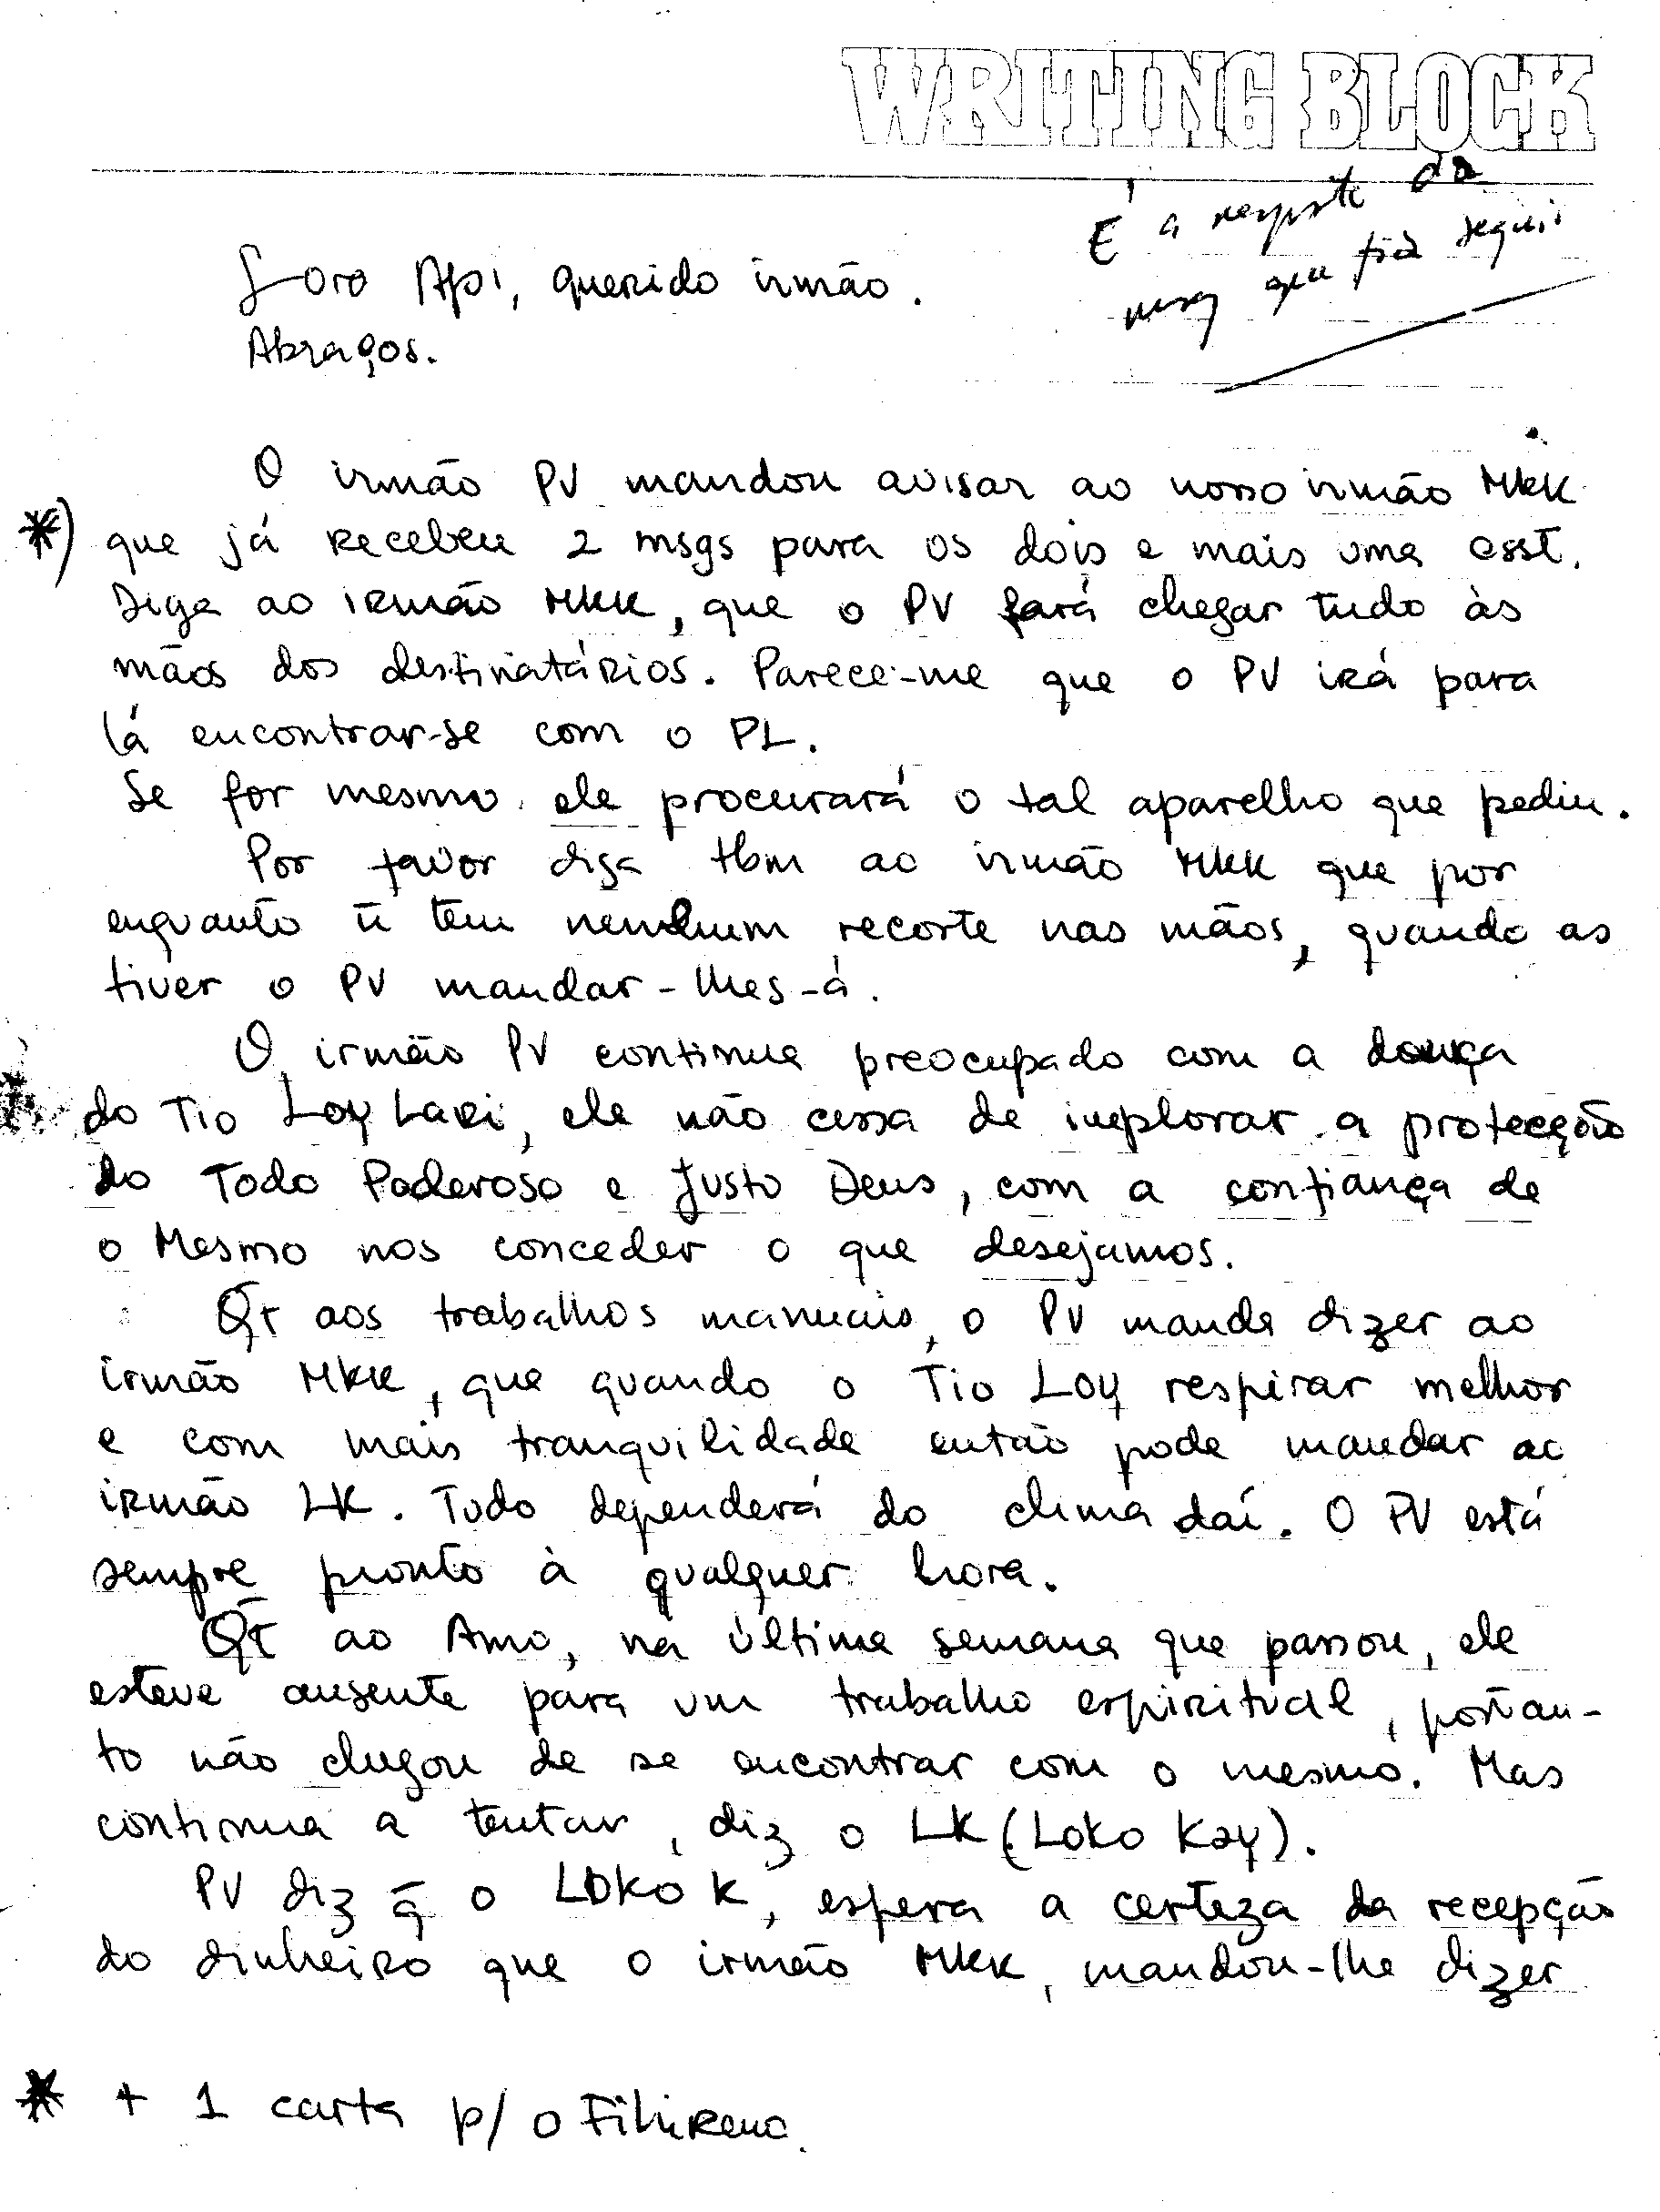 WRITING BLOCK
É a resposta da
msg que fiz seguir
Soro Api, querido irmão.
Abraços.
O irmão PV mandou avisar ao nosso irmão Mkk
*) que já recebeu 2 msgs para os dois e mais uma csst.
Diga ao irmão Mkk, que o PV fará chegar tudo às
mãos dos destinatários. Parece-me que o PV irá para
lá encontrar-se com o PL.
Se for mesmo ele procurará o tal aparelho que pediu.
Por favor diga tbm ao irmão Mkk que por
enquanto ñ tem nenhum recorte nas mãos, quando as
tiver o PV mandar-lhes-á.
O irmão PV continua preocupado com a doença
do Tio Loy Lari, ele não cessa de implorar a protecção
do Todo Poderoso e Justo Deus, com a confiança de
o Mesmo nos conceder o que desejamos.
Qt aos trabalhos manuais, o PV manda dizer ao
irmão Mkk, que quando o Tio Loy respirar melhor
e com mais tranquilidade então pode mandar ao
irmão LK. Tudo dependerá do clima daí. O PV está
sempre pronto à qualquer hora.
Qt ao Amo, na última semana que passou, ele
esteve ausente para um trabalho espiritual, portan-
to não chegou de se encontrar com o mesmo. Mas
continua a tentar, diz o LK (Loko Kay).
PV diz q̃ o Loko K, espera a certeza da recepção
do dinheiro que o irmão Mkk, mandou-lhe dizer
* + 1 carta p/ o